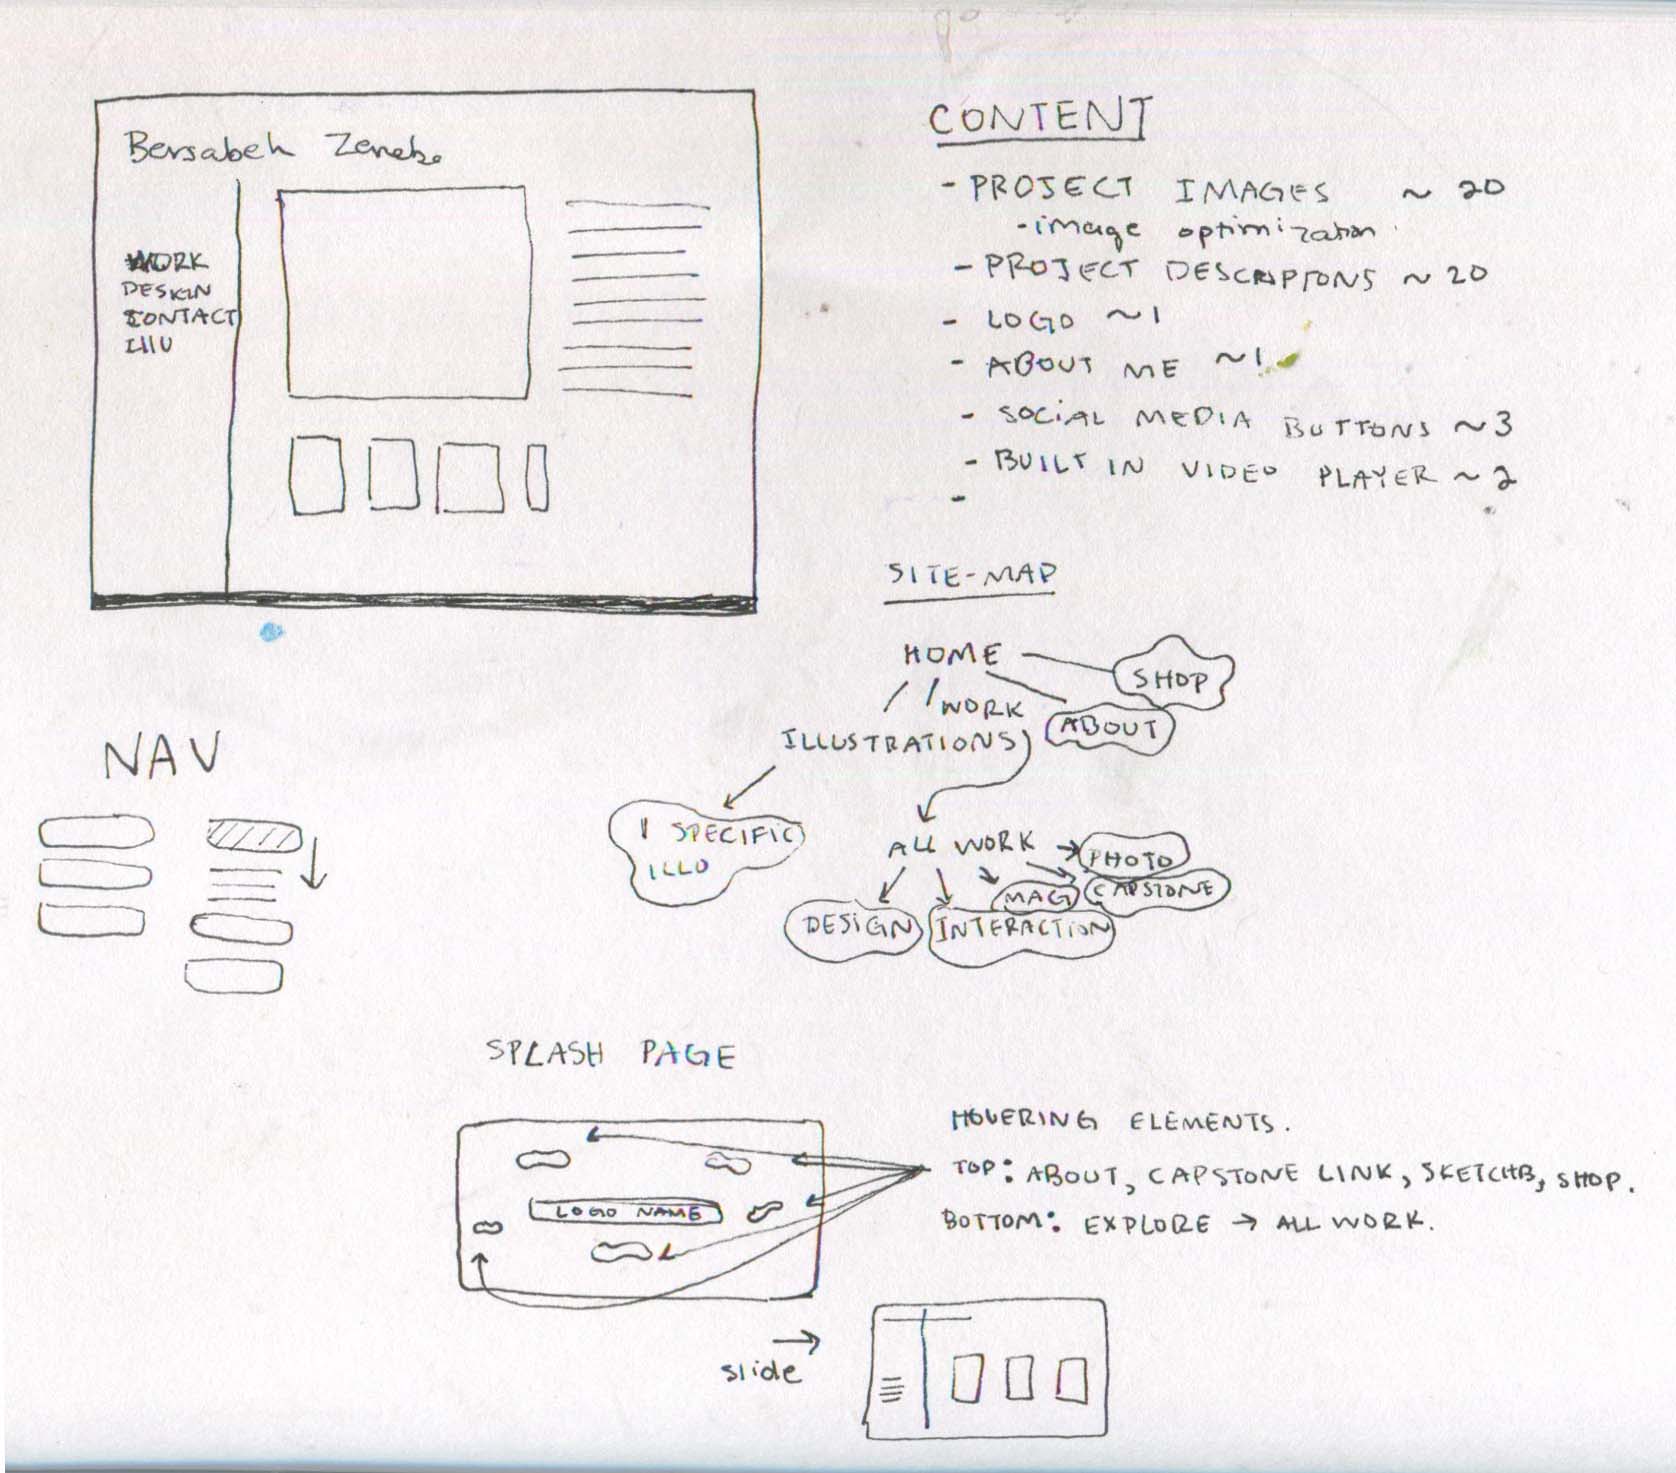 Bersabeh Zenebe
WORK
DESIGN
CONTACT
ILLU
CONTENT
- PROJECT IMAGES ~ 20
- image optimization
- PROJECT DESCRIPTIONS ~ 20
- LOGO ~1
- ABOUT ME ~1
- SOCIAL MEDIA BUTTONS ~3
- BUILT IN VIDEO PLAYER ~ 2
-
SITE-MAP
HOME
SHOP
WORK
ABOUT
ILLUSTRATIONS
1 SPECIFIC
ILLO
ALL WORK
PHOTO
MAG
CAPSTONE
DESIGN
INTERACTION
NAV
SPLASH PAGE
LOGO NAME
HOVERING ELEMENTS.
TOP: ABOUT, CAPSTONE LINK, SKETCHB, SHOP.
BOTTOM: EXPLORE → ALL WORK.
slide